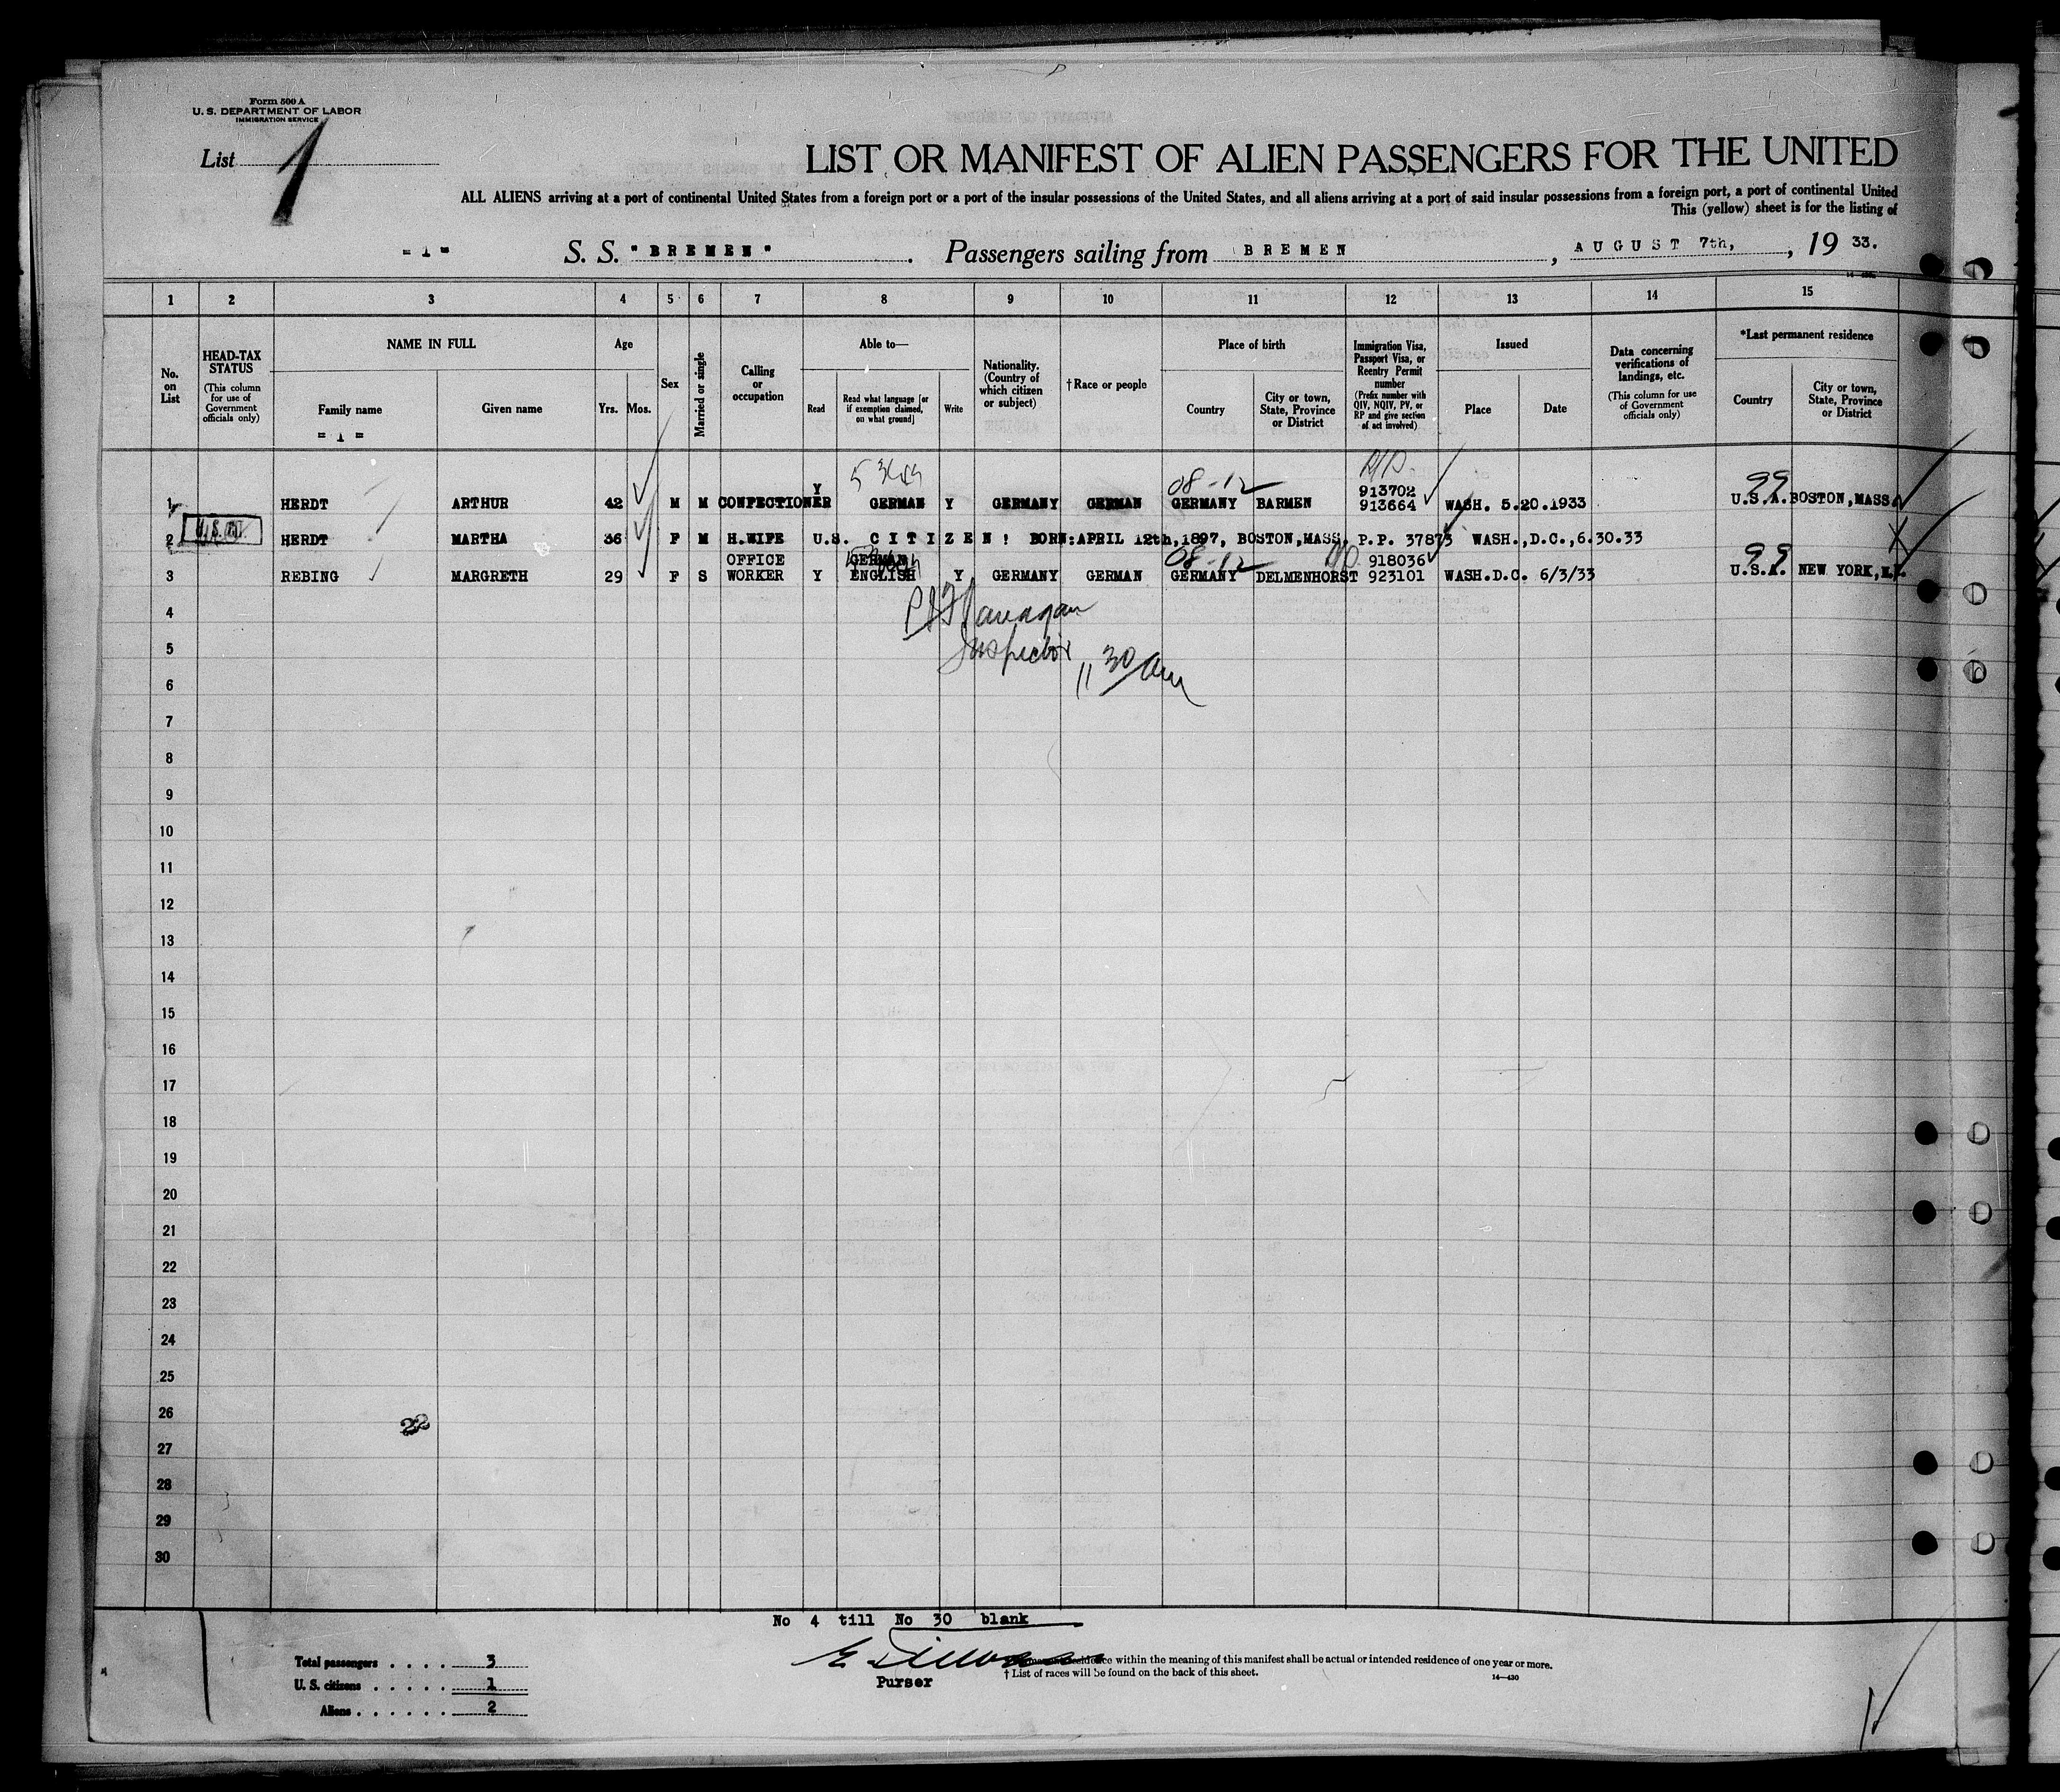 Form 500 A
U. S. DEPARTMENT OF LABOR
IMMIGRATION SERVICE
List 1
LIST OR MANIFEST OF ALIEN PASSENGERS FOR THE UNITED
ALL ALIENS arriving at a port of continental United States from a foreign port or a port of the insular possessions of the United States, and all aliens arriving at a port of said insular possessions from a foreign port, a port of continental United
This (yellow) sheet is for the listing of
- 1 - S. S. "BREMEN". Passengers sailing from BREMEN, AUGUST 7th, , 19 33.
1 2 3 4 5 6 7 8 9 10 11 12 13 14 15
No. on List
HEAD-TAX STATUS (This column for use of Government officials only)
NAME IN FULL
Family name
Given name
- 1 -
Age
Yrs. Mos.
Sex
Married or single
Calling or occupation
Able to—
Read
Read what language [or if exemption claimed, on what ground]
Write
Nationality. (Country of which citizen or subject)
†Race or people
Place of birth
Country
City or town, State, Province or District
Immigration Visa, Passport Visa, or Reentry Permit number (Prefix number with QIV, NQIV, PV, or RP and give section of act involved)
Issued
Place
Date
Data concerning verifications of landings, etc. (This column for use of Government officials only)
*Last permanent residence
Country
City or town, State, Province or District
08-12 99
913702
1 HERDT ARTHUR 42 M M CONFECTIONER Y GERMAN Y GERMANY GERMAN GERMANY BARMEN 913664 WASH. 5.20.1933 U.S.A. BOSTON,MASS.
2 HERDT MARTHA 36 F M H.WIFE U.S. CITIZEN! BORN:APRIL 12th,1897, BOSTON,MASS. P.P. 37873 WASH.,D.C.,6.30.33
OFFICE GERMAN 08-12 918036 99
3 REBING MARGRETH 29 F S WORKER Y ENGLISH Y GERMANY GERMAN GERMANY DELMENHORST 923101 WASH.D.C. 6/3/33 U.S.A. NEW YORK,N.Y.
4 Flanagan
5 Inspector
6 11 30 am
7
8
9
10
11
12
13
14
15
16
17
18
19
20
21
22
23
24
25
26
22
27
28
29
30
No 4 till No 30 blank
Total passengers . . . . 3
U. S. citizens . . . . . 1
Aliens . . . . . . 2
Purser
residence within the meaning of this manifest shall be actual or intended residence of one year or more.
† List of races will be found on the back of this sheet.
14—430